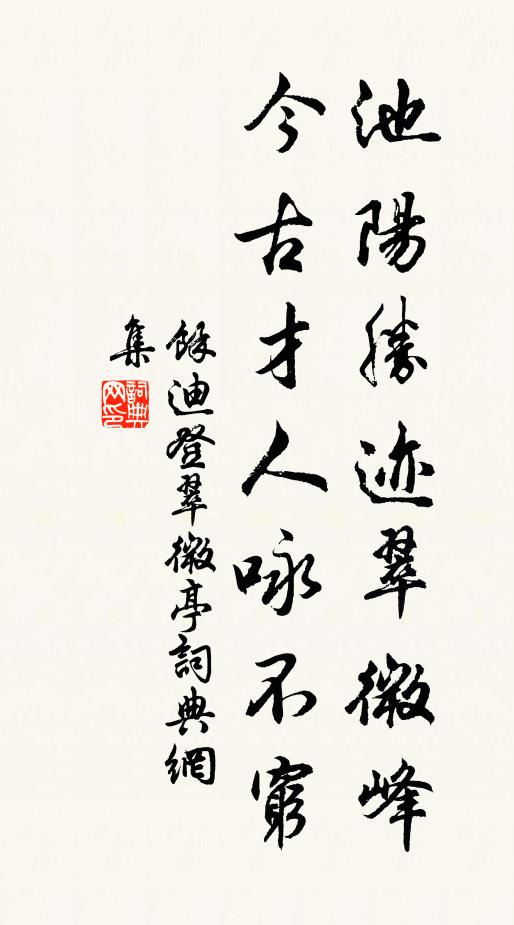 池陽勝迹翠微峰
今古才人咏不窮
餘迪登翠微亭詞典網
集
詞典網印